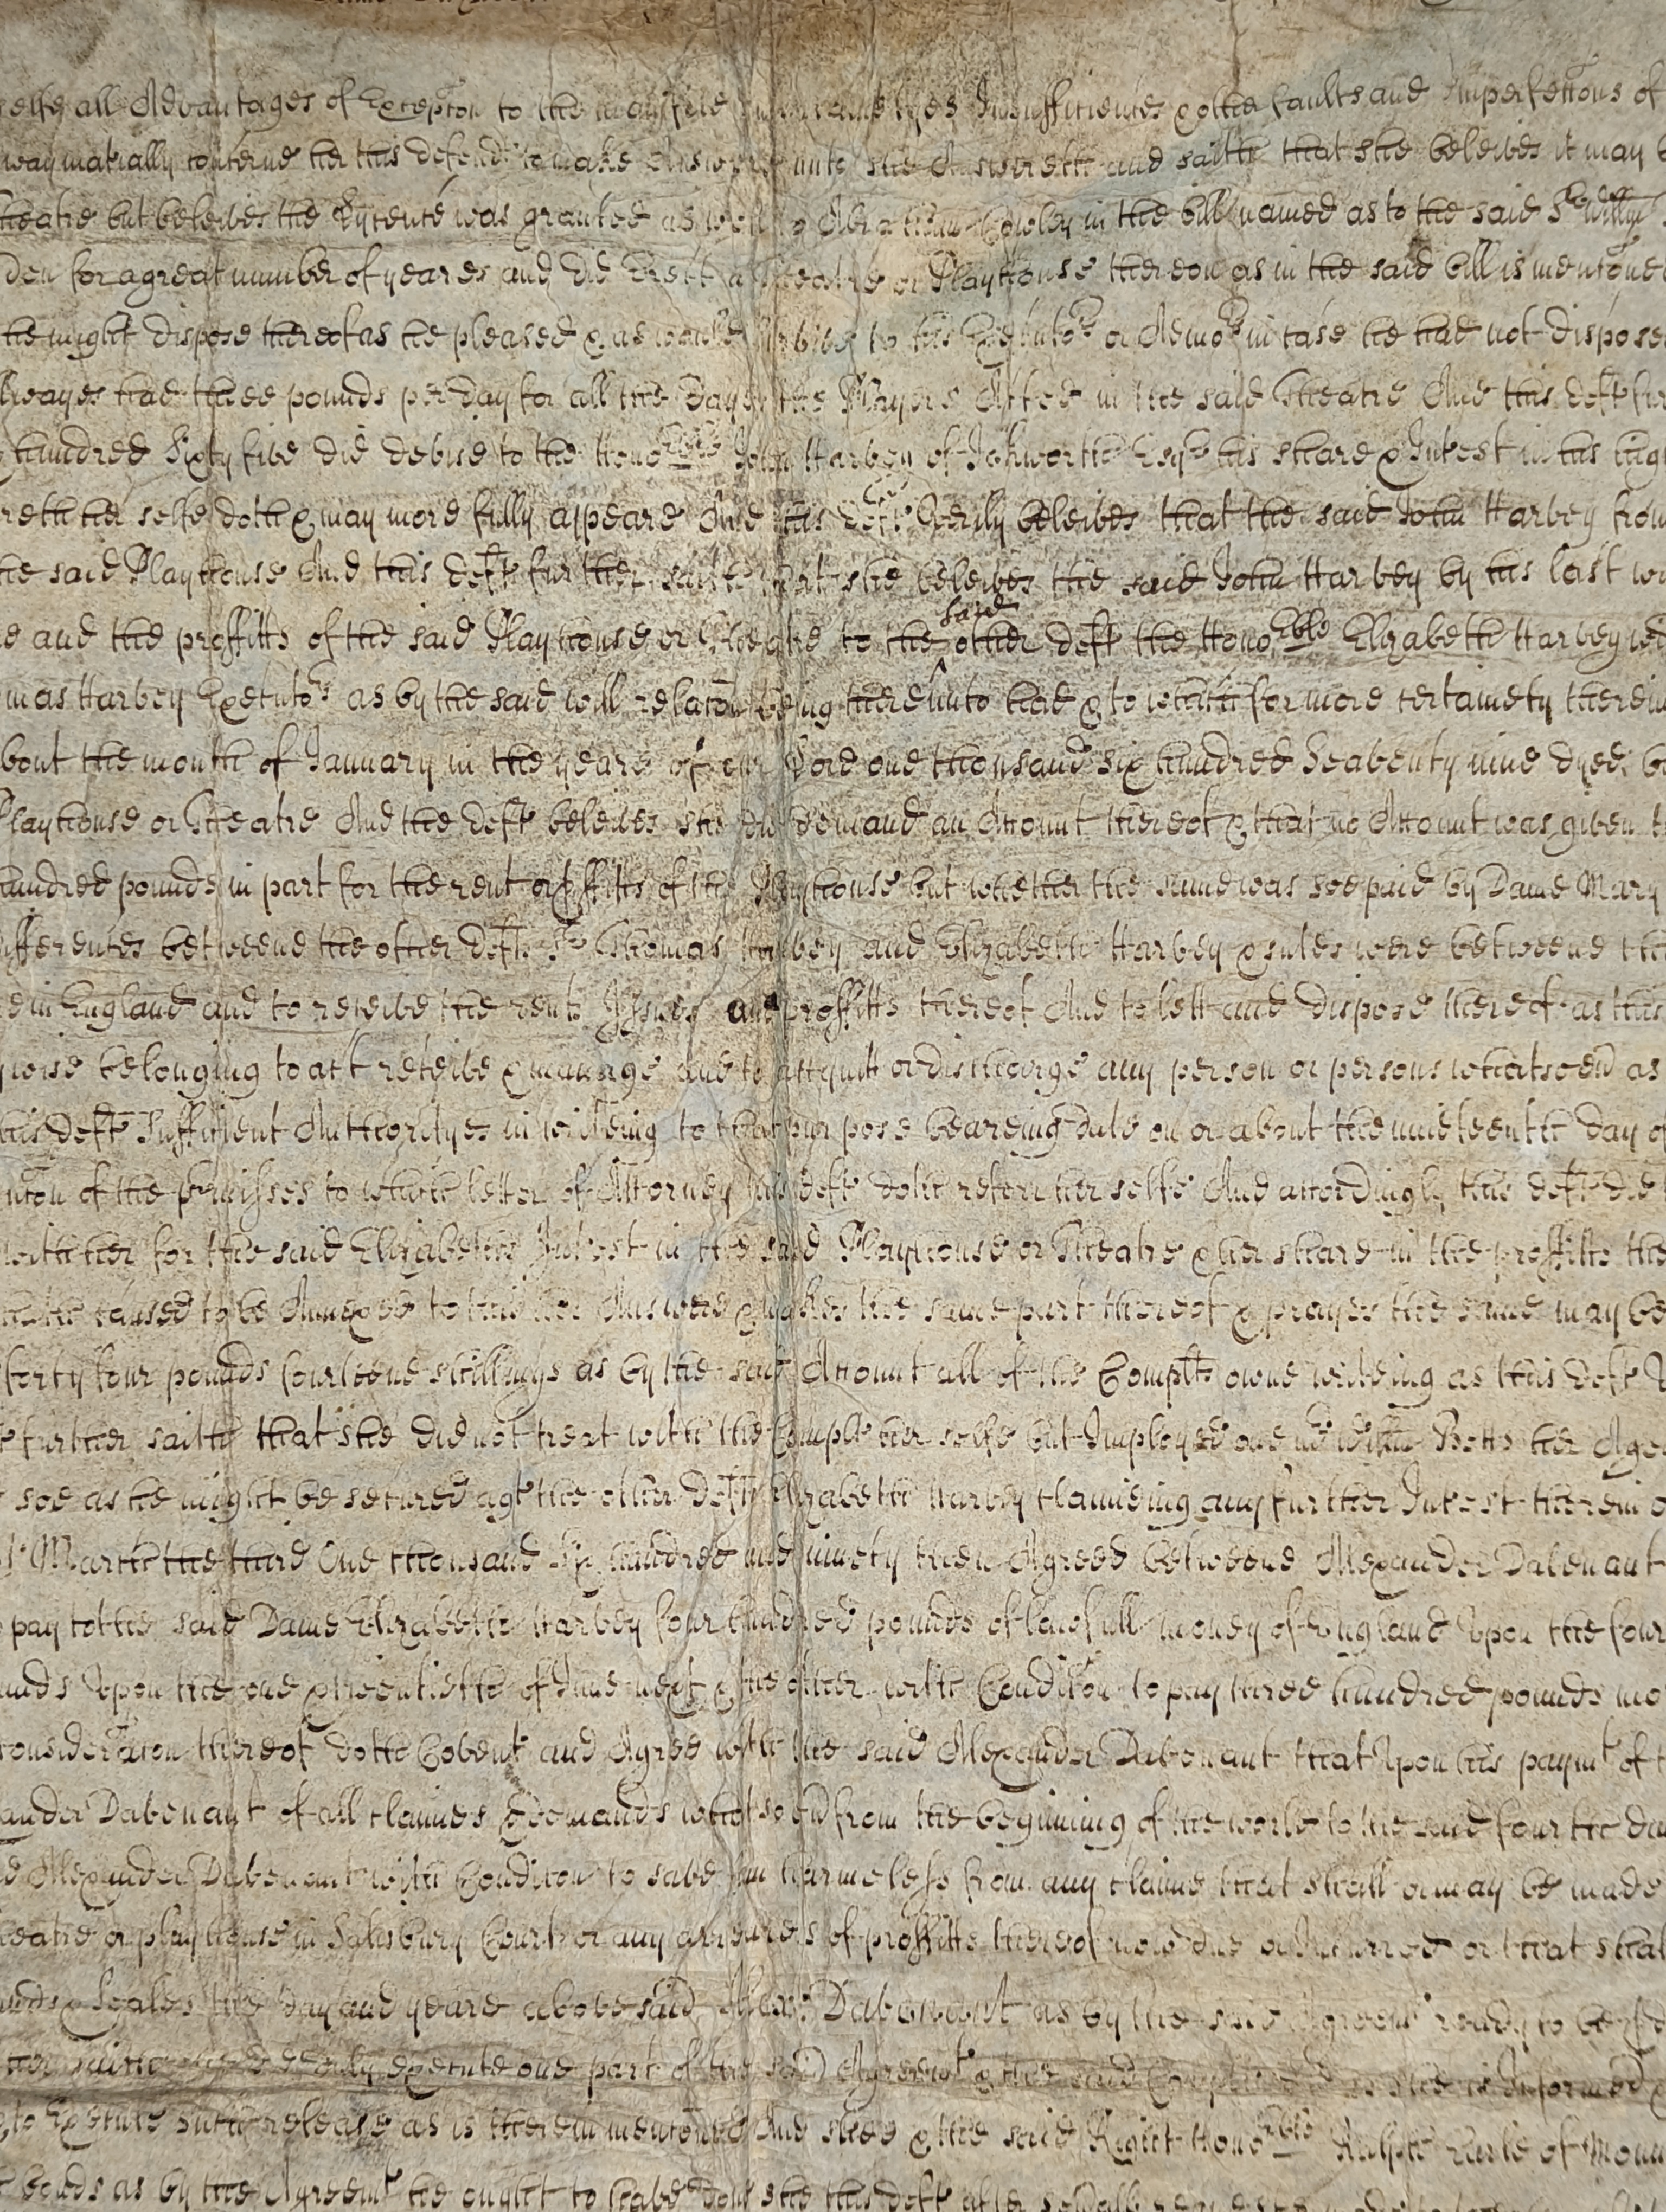 selfe all Advantages of Excepton to the manifold Incertaintyes Insufficiencies & other faults and Imperfections of
way matially concerne her this defendt to make Answere unto she Answereth and saith that she beleives it may b
Theatre but beleives the Lycence was granted as well to Abraham Cowley in the bill named as to the said Sr Willm
den for a great number of yeares and did Erect a Theatre or Playhouse thereon as in the said bill is mentoned
he might dispose thereof as he pleased & as would to his Executors or Admors in case he had not disposed
allwayes had three pounds per day for all the dayes the Players Acted in the said Theatre And this deft fur
hundred Sixty five did devise to the Honoble John Harvey of Ickworth Esqr his share & Intrest in his
reth her selfe doth & may more fully appeare And this deft Verily beleives that the said John Harvey from
the said Playhouse And this deft further saith that she beleives the said John Harvey by his last wi
e and the proffitts of the said Playhouse or Theatre to the said other deft the Honoble Elizabeth Harvey
mas Harvey Executors as by the said will relacon being thereunto had & to which for more certainety therein
about the month of January in the yeare of our Lord one thousand six hundred Seaventy nine dyed, b
Playhouse or Theatre And the deft beleives she did demand an Accomt thereof & that no Accomt was given t
hundred pounds in part for the rent or proffitts of the Playhouse but whether the same was soe paid by Dame Mary
ifferences betweene the other defts Sr Thomas Harvey and Elizabeth Harvey & suites were betweene the
e in England and to receive the rents Issues and proffitts thereof And to lett and dispose thereof as this
wise belonging to act receive & manage and to acquitt or discharge any person or persons whatsoevr as
this deft Sufficient Authorityes in writeing to that purpose beareing date on or about the nineteenth day of
of the premisses to which letter of Attorney this deft doth referr her selfe And accordingly this deft did
with her for the said Elizabeths Intrest in the said Playhouse or Theatre & her share in the proffitts the
hath caused to be Annexed to this her Answere & makes the same part thereof & prayes the same may be
forty four pounds fourteene shillings as by the said Accomt all of the Complts owne writeing as this deft
furthr saith that she did not treat with the Complt her selfe but Imployed one Mr Willm Betts her Agen
soe as he might be secured agt the other deft Elizabeth Harvey claimeing any further Intrest therein o
March the third One thousand six hundred and ninety then Agreed betweene Alexander Davenant
pay to the said Dame Elizabeth Harvey four hundred pounds of lawfull money of England Upon the four
unds Upon the one & twentieth of June next & the other with Conditon to pay three hundred pounds mo
consideracon thereof doth Covent and Agree with the said Alexander Davenant that Upon his paymt of t
ander Davenant of all claimes & demands whatsoevr from the begining of the world to the said fourth da
d Alexander Davenant with Conditon to save him harmelesse from any claime that shall or may be made
eatre or playhouse in Salisbury Court or any arreares of proffitts thereof now due or Incurred or that shal
nds & Seales the day and yeare abovesaid Alexr: Davenant as by the said Agreemt ready to be
her saith duly execute one part of the said Agreemt & the said Complt as she is Informed
to Execute such release as is therein mentoned And shee & the said Right Honoble Ralph Earle of Moun
bonds as by the Agreemt he ought to have done she this deft after